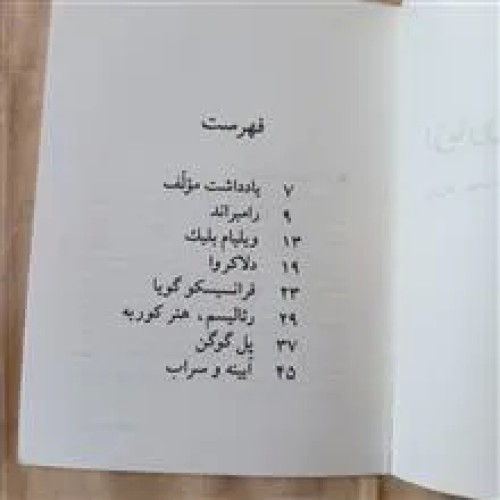 فهرست
یادداشت مؤلّف ۷
رامبراند ۹
ویلیام بلیك ۱۳
دلاکروا ۱۹
فرانسیسکو گویا ۲۳
رئالیسم، هنر کوربه ۲۹
پل گوگن ۳۷
آیینه و سراب ۴۵